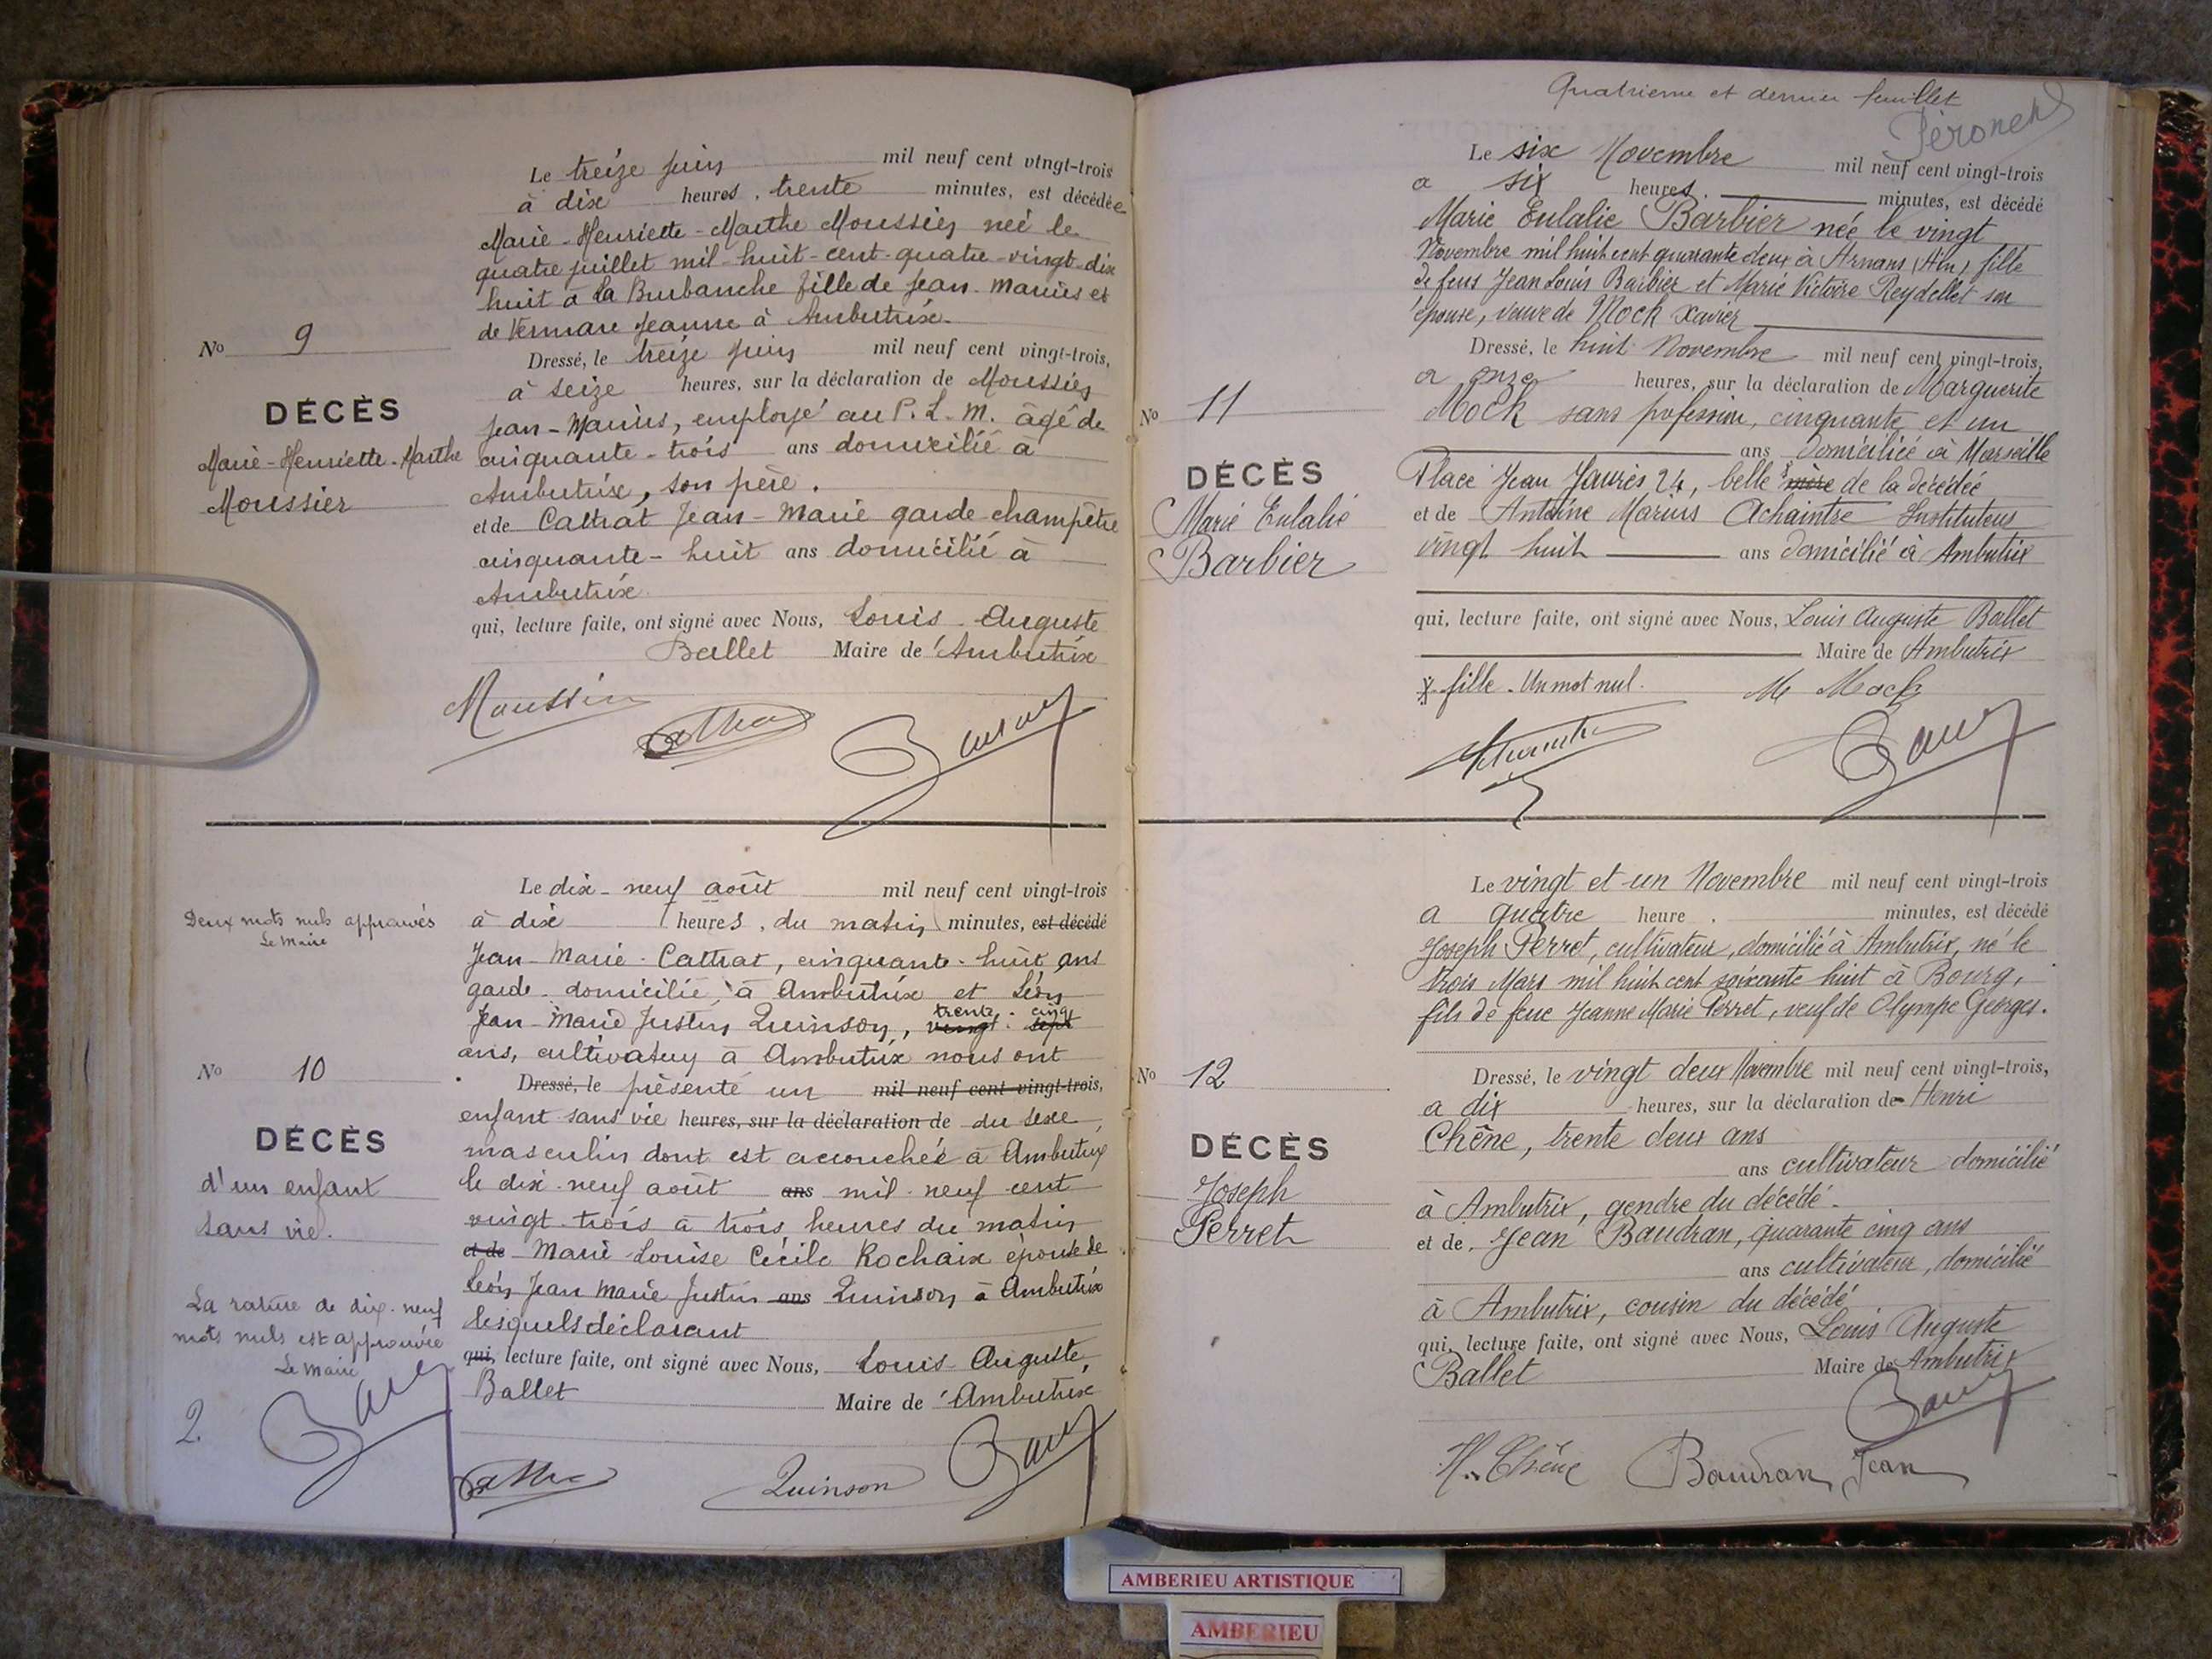 Le treize juin mil neuf cent vingt-trois
à dix heures, trente minutes, est décédée
Marie-Henriette-Marthe Moussier née le
quatre juillet mil-huit-cent-quatre-vingt-dix
huit à la Burbanche fille de Jean-Marius et
de Vermare Jeanne à Ambutrix.
No 9
DÉCÈS
Marie-Henriette-Marthe
Moussier
Dressé, le treize juin mil neuf cent vingt-trois,
à seize heures, sur la déclaration de Moussier
Jean-Marius, employé au P. L. M. âgé de
cinquante-trois ans domicilié à
Ambutrix, son père.
et de Cattrat Jean-Marie garde champêtre
cinquante-huit ans domicilié à
Ambutrix
qui, lecture faite, ont signé avec Nous, Louis-Auguste
Ballet Maire de Ambutrix
Moussier
Deux mots nuls approuvés
Le Maire
No 10
DÉCÈS
d'un enfant
sans vie.
La rature de dix-neuf
mots nuls est approuvée
Le Maire
2
Le dix-neuf août mil neuf cent vingt-trois
à dix heures, du matin minutes, est décédé
Jean-Marie-Cattrat, cinquante-huit ans
garde domicilié à Ambutrix et Léon
Jean-Marie Justin Quinson, vingt-sept trente-cinq
ans, cultivateur à Ambutrix nous ont
Dressé, le présenté un mil neuf cent vingt-trois,
enfant sans vie heures, sur la déclaration de du sexe
masculin dont est accouchée à Ambutrix
le dix-neuf août ans mil-neuf cent
vingt-trois à trois heures du matin
et de Marie-Louise Cécile Rochaix épouse de
Léon Jean Marie Justin ans Quinson à Ambutrix
lesquels déclarant
qui, lecture faite, ont signé avec Nous, Louis-Auguste,
Ballet Maire de Ambutrix
Quinson
Quatrieme et dernier feuillet
Le six Novembre mil neuf cent vingt-trois
a six heures. minutes, est décédé
Marie Eulalie Barbier née le vingt
Novembre mil huit cent quarante deux à Arnans (Ain) fille
de feus Jean Louis Barbier et Marie Victoire Reydellet son
épouse, veuve de Mock Xavier
No 11
DÉCÈS
Marie Eulalie
Barbier
Dressé, le huit Novembre mil neuf cent vingt-trois,
a onze heures, sur la déclaration de Marguerite
Mock sans profession, cinquante et un
ans domiciliée à Marseille
Place Jean Jaurès 24, belle mère de la décédée
et de Antoine Marius Achaintre Instituteur
vingt huit ans domicilié à Ambutrix
qui, lecture faite, ont signé avec Nous, Louis Auguste Ballet
Maire de Ambutrix
fille. Un mot nul. M Mock
Le vingt et un Novembre mil neuf cent vingt-trois
a quatre heure. minutes, est décédé
Joseph Perret, cultivateur, domicilié à Ambutrix, né le
trois Mars mil huit cent soixante huit à Bourg,
fils de feue Jeanne Marie Perret, veuf de Olympe Georges.
No 12
DÉCÈS
Joseph
Perret
Dressé, le vingt deux Novembre mil neuf cent vingt-trois,
a dix heures, sur la déclaration de Henri
Chêne, trente deux ans
ans cultivateur domicilié
à Ambutrix, gendre du décédé.
et de Jean Baudran, quarante cinq ans
ans cultivateur, domicilié
à Ambutrix, cousin du décédé
qui, lecture faite, ont signé avec Nous, Louis Auguste
Ballet Maire de Ambutrix
H. Chêne Baudran Jean
AMBERIEU ARTISTIQUE
AMBERIEU